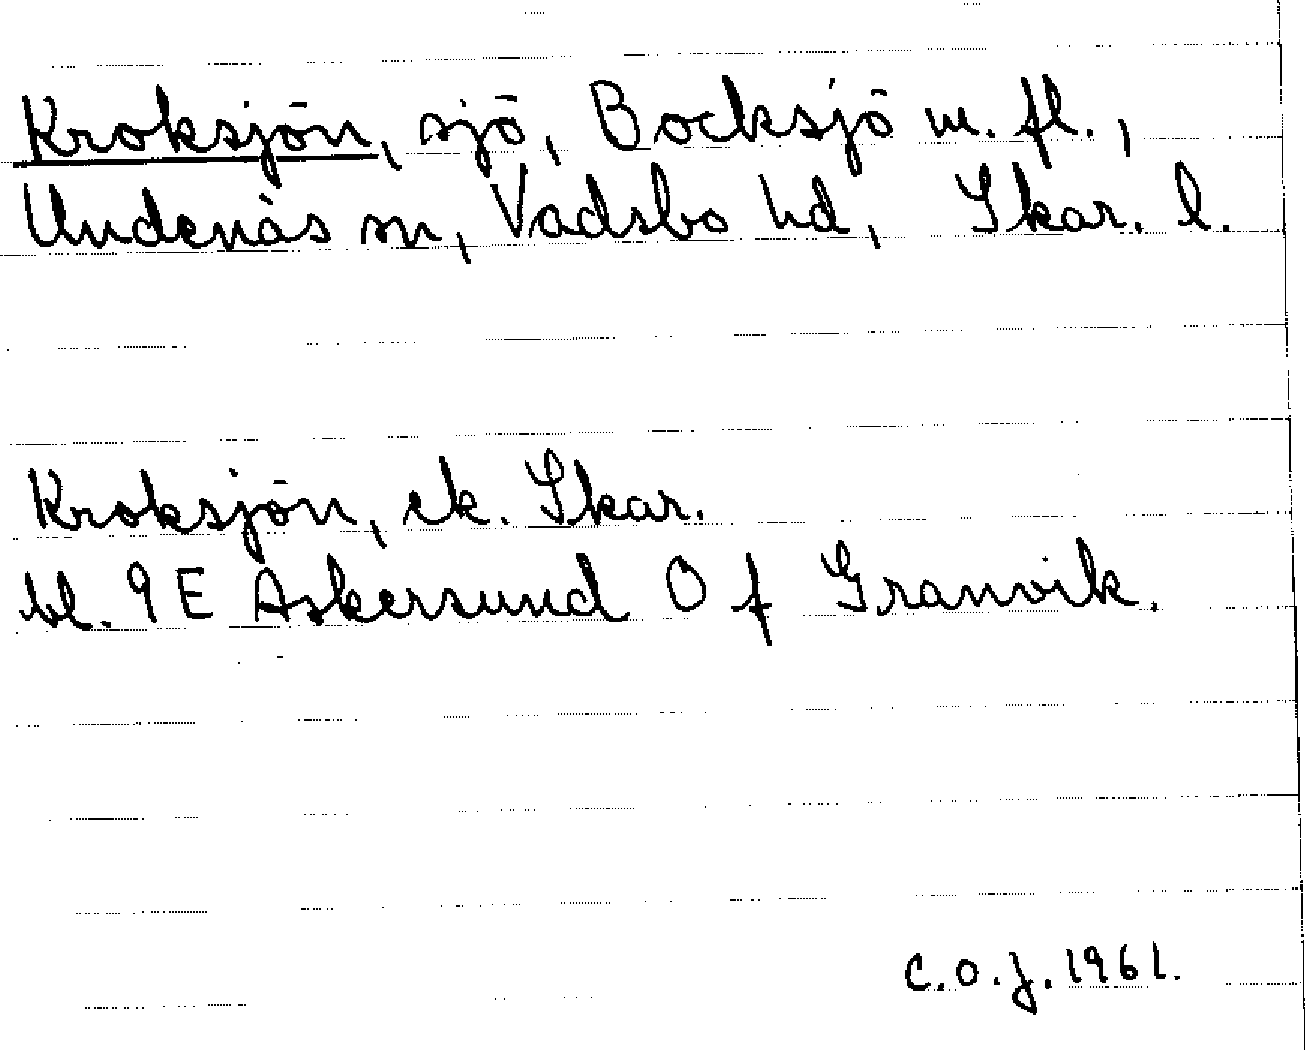 Kroksjön, sjö, Bocksjö m. fl.,
Undenäs sn, Vadsbo hd, Skar. l.
Kroksjön, ek. Skar.
bl. 9E Askersund O f Granvik.
C.O.J. 1961.